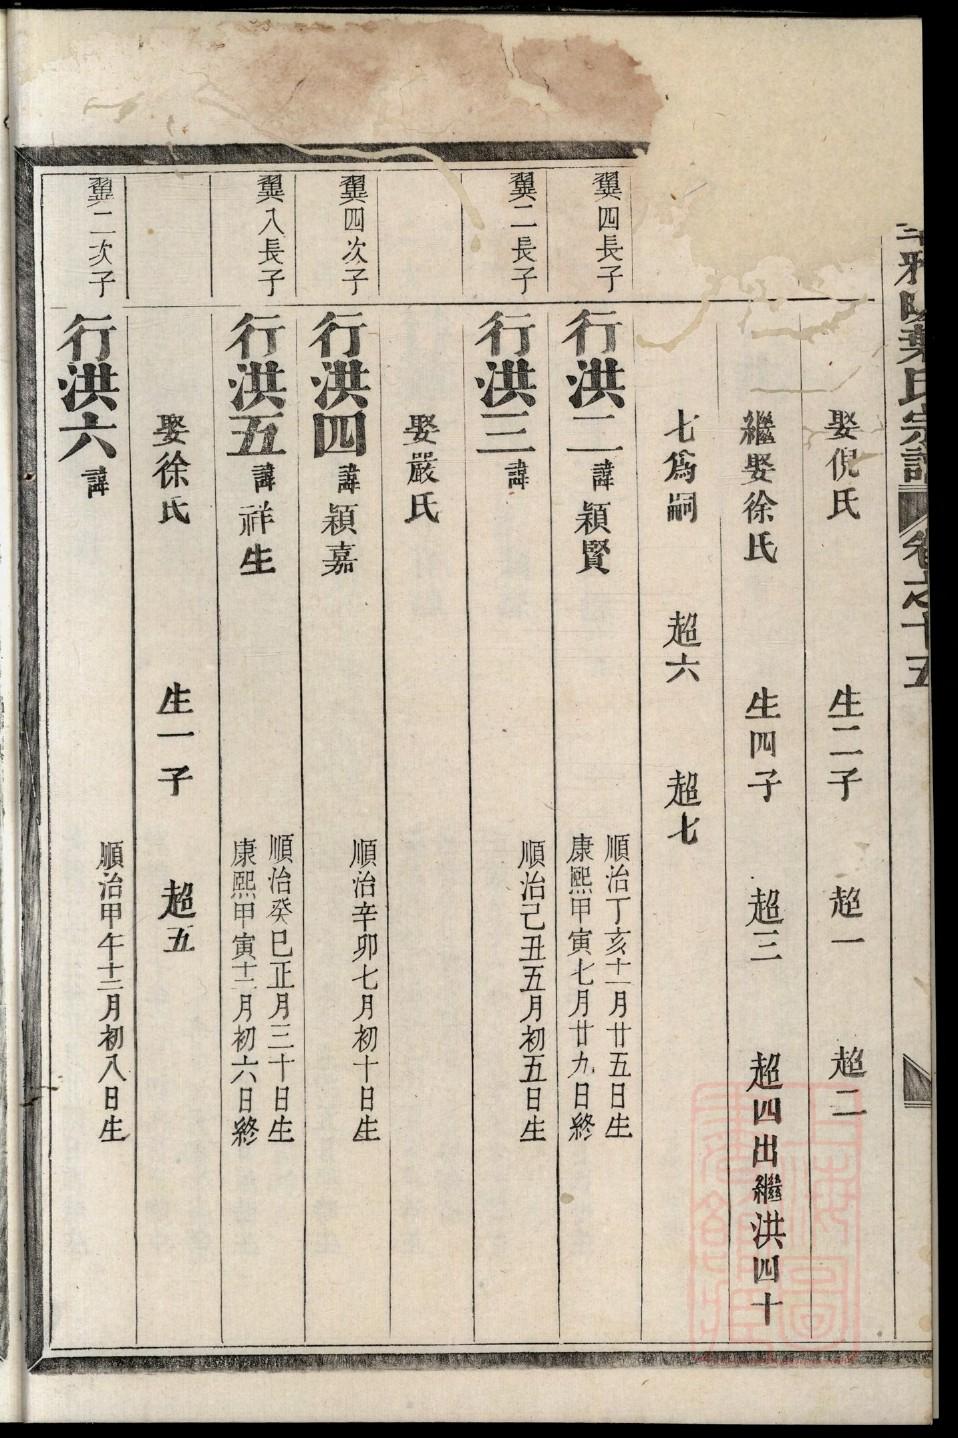 雅陽葉氏宗譜 卷之十五
娶倪氏 生二子 超一 超二
繼娶徐氏 生四子 超三 超四出繼洪四十
七為嗣 超六 超七
翼四長子 行洪二 諱 穎賢 順治丁亥十一月廿五日生
康熙甲寅七月廿九日終
翼二長子 行洪三 諱 順治己丑五月初五日生
娶嚴氏
翼四次子 行洪四 諱 穎嘉 順治辛卯七月初十日生
翼八長子 行洪五 諱 祥生 順治癸巳正月三十日生
康熙甲寅十二月初六日終
娶徐氏 生一子 超五
翼二次子 行洪六 諱 順治甲午十二月初八日生